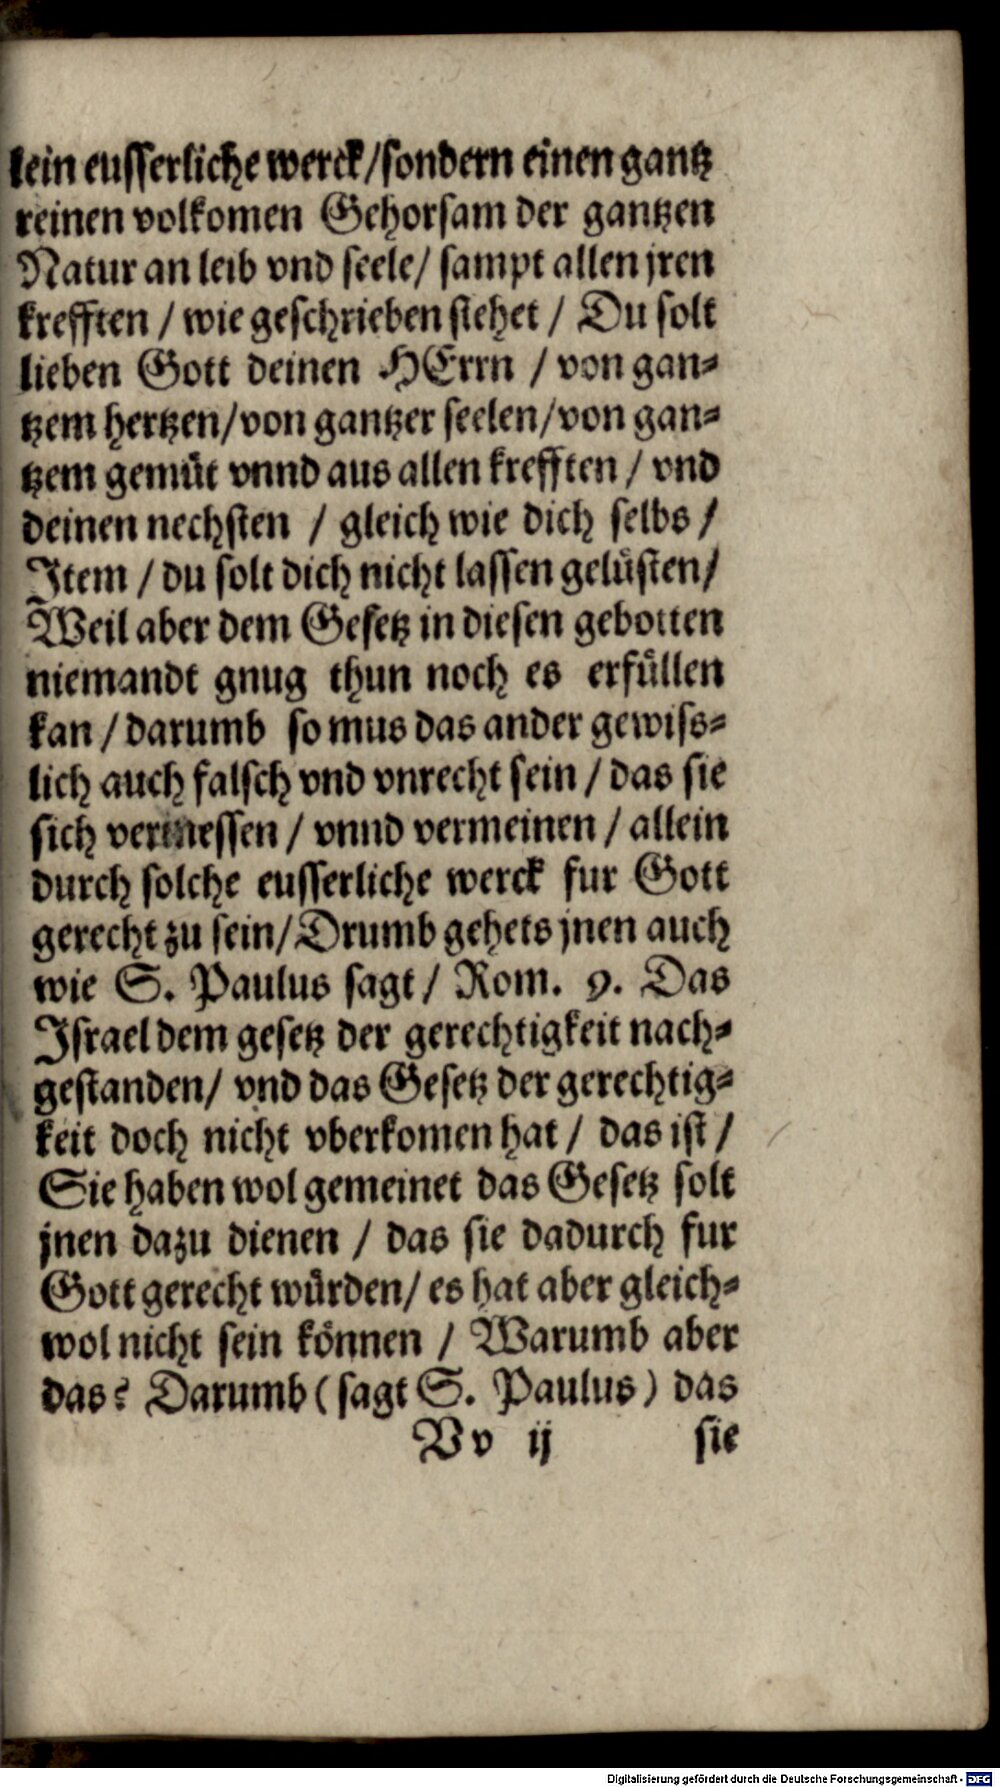 lein eusserliche werck/sondern einen gantz
reinen volkomen Gehorsam der gantzen
Natur an leib vnd seele/ sampt allen jren
krefften / wie geschrieben stehet / Du solt
lieben Gott deinen HErrn / von gan-
tzem hertzen/von gantzer seelen/von gan-
tzem gemüt vnnd aus allen krefften / vnd
deinen nechsten / gleich wie dich selbs /
Item / du solt dich nicht lassen gelüsten/
Weil aber dem Gesetz in diesen gebotten
niemandt gnug thun noch es erfüllen
kan / darumb so mus das ander gewiss-
lich auch falsch vnd vnrecht sein / das sie
sich vermessen / vnnd vermeinen / allein
durch solche eusserliche werck fur Gott
gerecht zu sein/Drumb gehets jnen auch
wie S. Paulus sagt / Rom. 9. Das
Israel dem gesetz der gerechtigkeit nach-
gestanden/ vnd das Gesetz der gerechtig-
keit doch nicht vberkomen hat / das ist /
Sie haben wol gemeinet das Gesetz solt
jnen dazu dienen / das sie dadurch fur
Gott gerecht würden/ es hat aber gleich-
wol nicht sein können / Warumb aber
das? Darumb (sagt S. Paulus) das
Vv ij sie
Digitalisierung gefördert durch die Deutsche Forschungsgemeinschaft - DFG